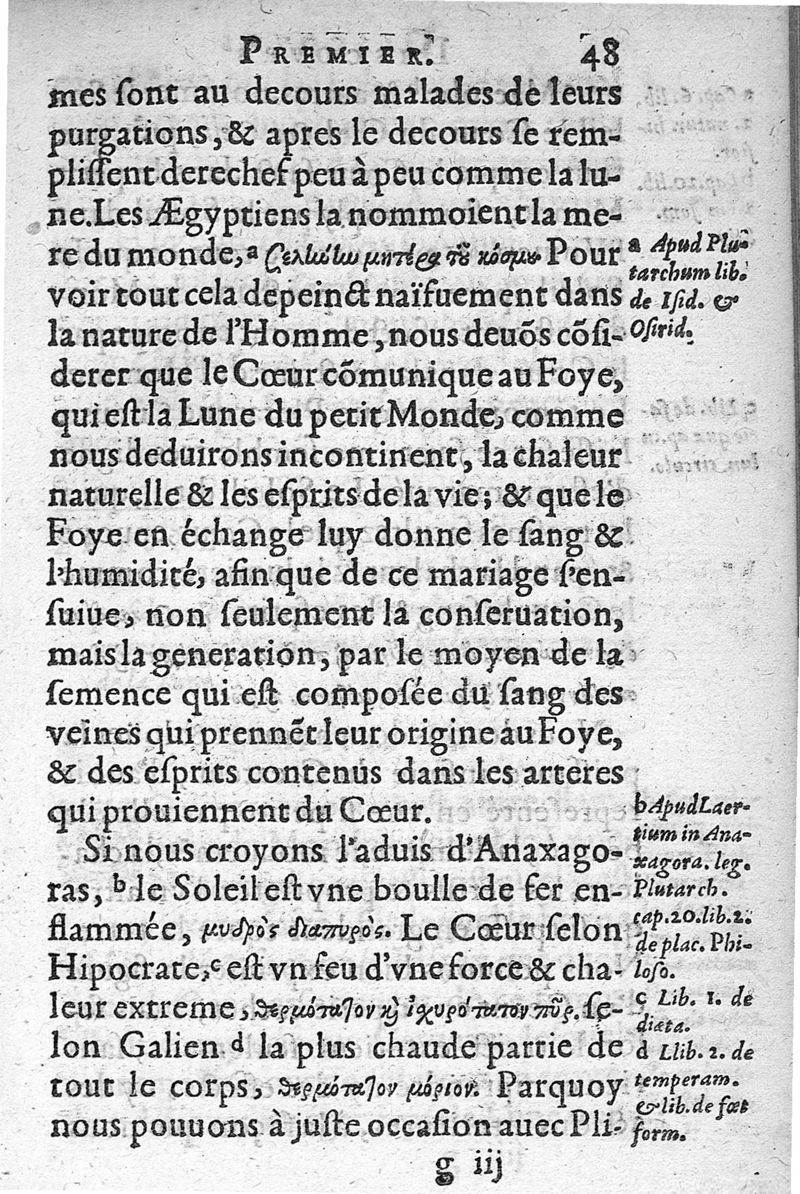 PREMIER. 48
mes ſont au decours malades de leurs
purgations, & apres le decours ſe rem-
pliſſent derechef peu à peu comme la lu-
ne. Les Ægyptiens la nommoient la me-
re du monde, ᵃ Σελωίω μητέρα τ῀ȣ κόσμȣ. Pour
voir tout cela depeinct naïfuement dans
la nature de l'Homme, nous deuõs cõſi-
derer que le Cœur cõmunique au Foye,
qui eſt la Lune du petit Monde, comme
nous deduirons incontinent, la chaleur
naturelle & les eſprits de la vie; & que le
Foye en échange luy donne le ſang &
l'humidité, afin que de ce mariage ſ'en-
ſuiue, non ſeulement la conſeruation,
mais la generation, par le moyen de la
ſemence qui eſt compoſée du ſang des
veines qui prennẽt leur origine au Foye,
& des eſprits contenus dans les arteres
qui prouiennent du Cœur.
Si nous croyons l'aduis d'Anaxago-
ras, ᵇ le Soleil eſt vne boulle de fer en-
flammée, μυδρὸς διαπυρὸς. Le Cœur ſelon
Hipocrate, ᶜ eſt vn feu d'vne force & cha-
leur extreme, θερμότατον κỳ ἰχυρότατον πῦρ. ſe-
lon Galien ᵈ la plus chaude partie de
tout le corps, θερμότατον μόριον. Parquoy
nous pouuons à juſte occaſion auec Pli-
g iij
a Apud Plu-
tarchum lib.
de Iſid. &
Oſirid.
b Apud Laer-
tium in Ana-
xagora. leg.
Plutarch.
cap. 20. lib. 2.
de plac. Phi-
loſo.
c Lib. 1. de
diæta.
d Llib. 2. de
temperam.
& lib. de fœt
form.